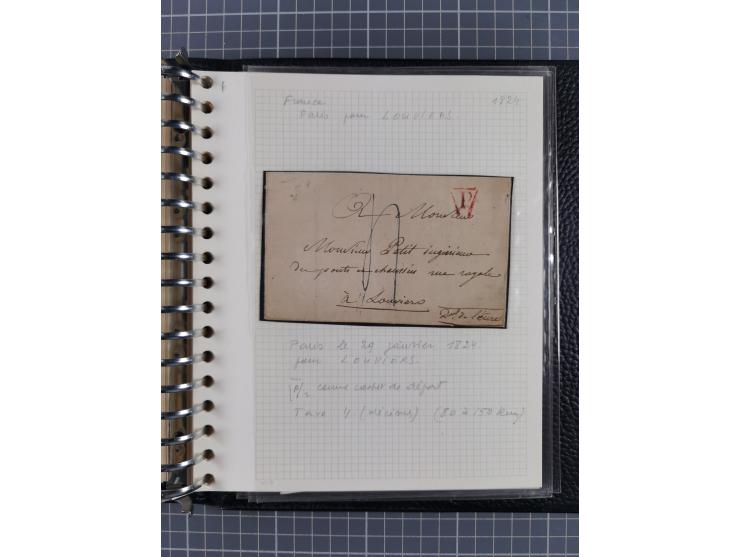 France 1824
Paris pour LOUVIERS.
P
A Monsieur
Monsieur Petit ingénieur
des ponts et chaussées rue royale
à Louviers
Dpt de l'Eure
4
Paris le 29 janvier 1824
pour LOUVIERS.
P/2 comme cachet de départ
Taxe 4 (décimes) (80 à 150 km)